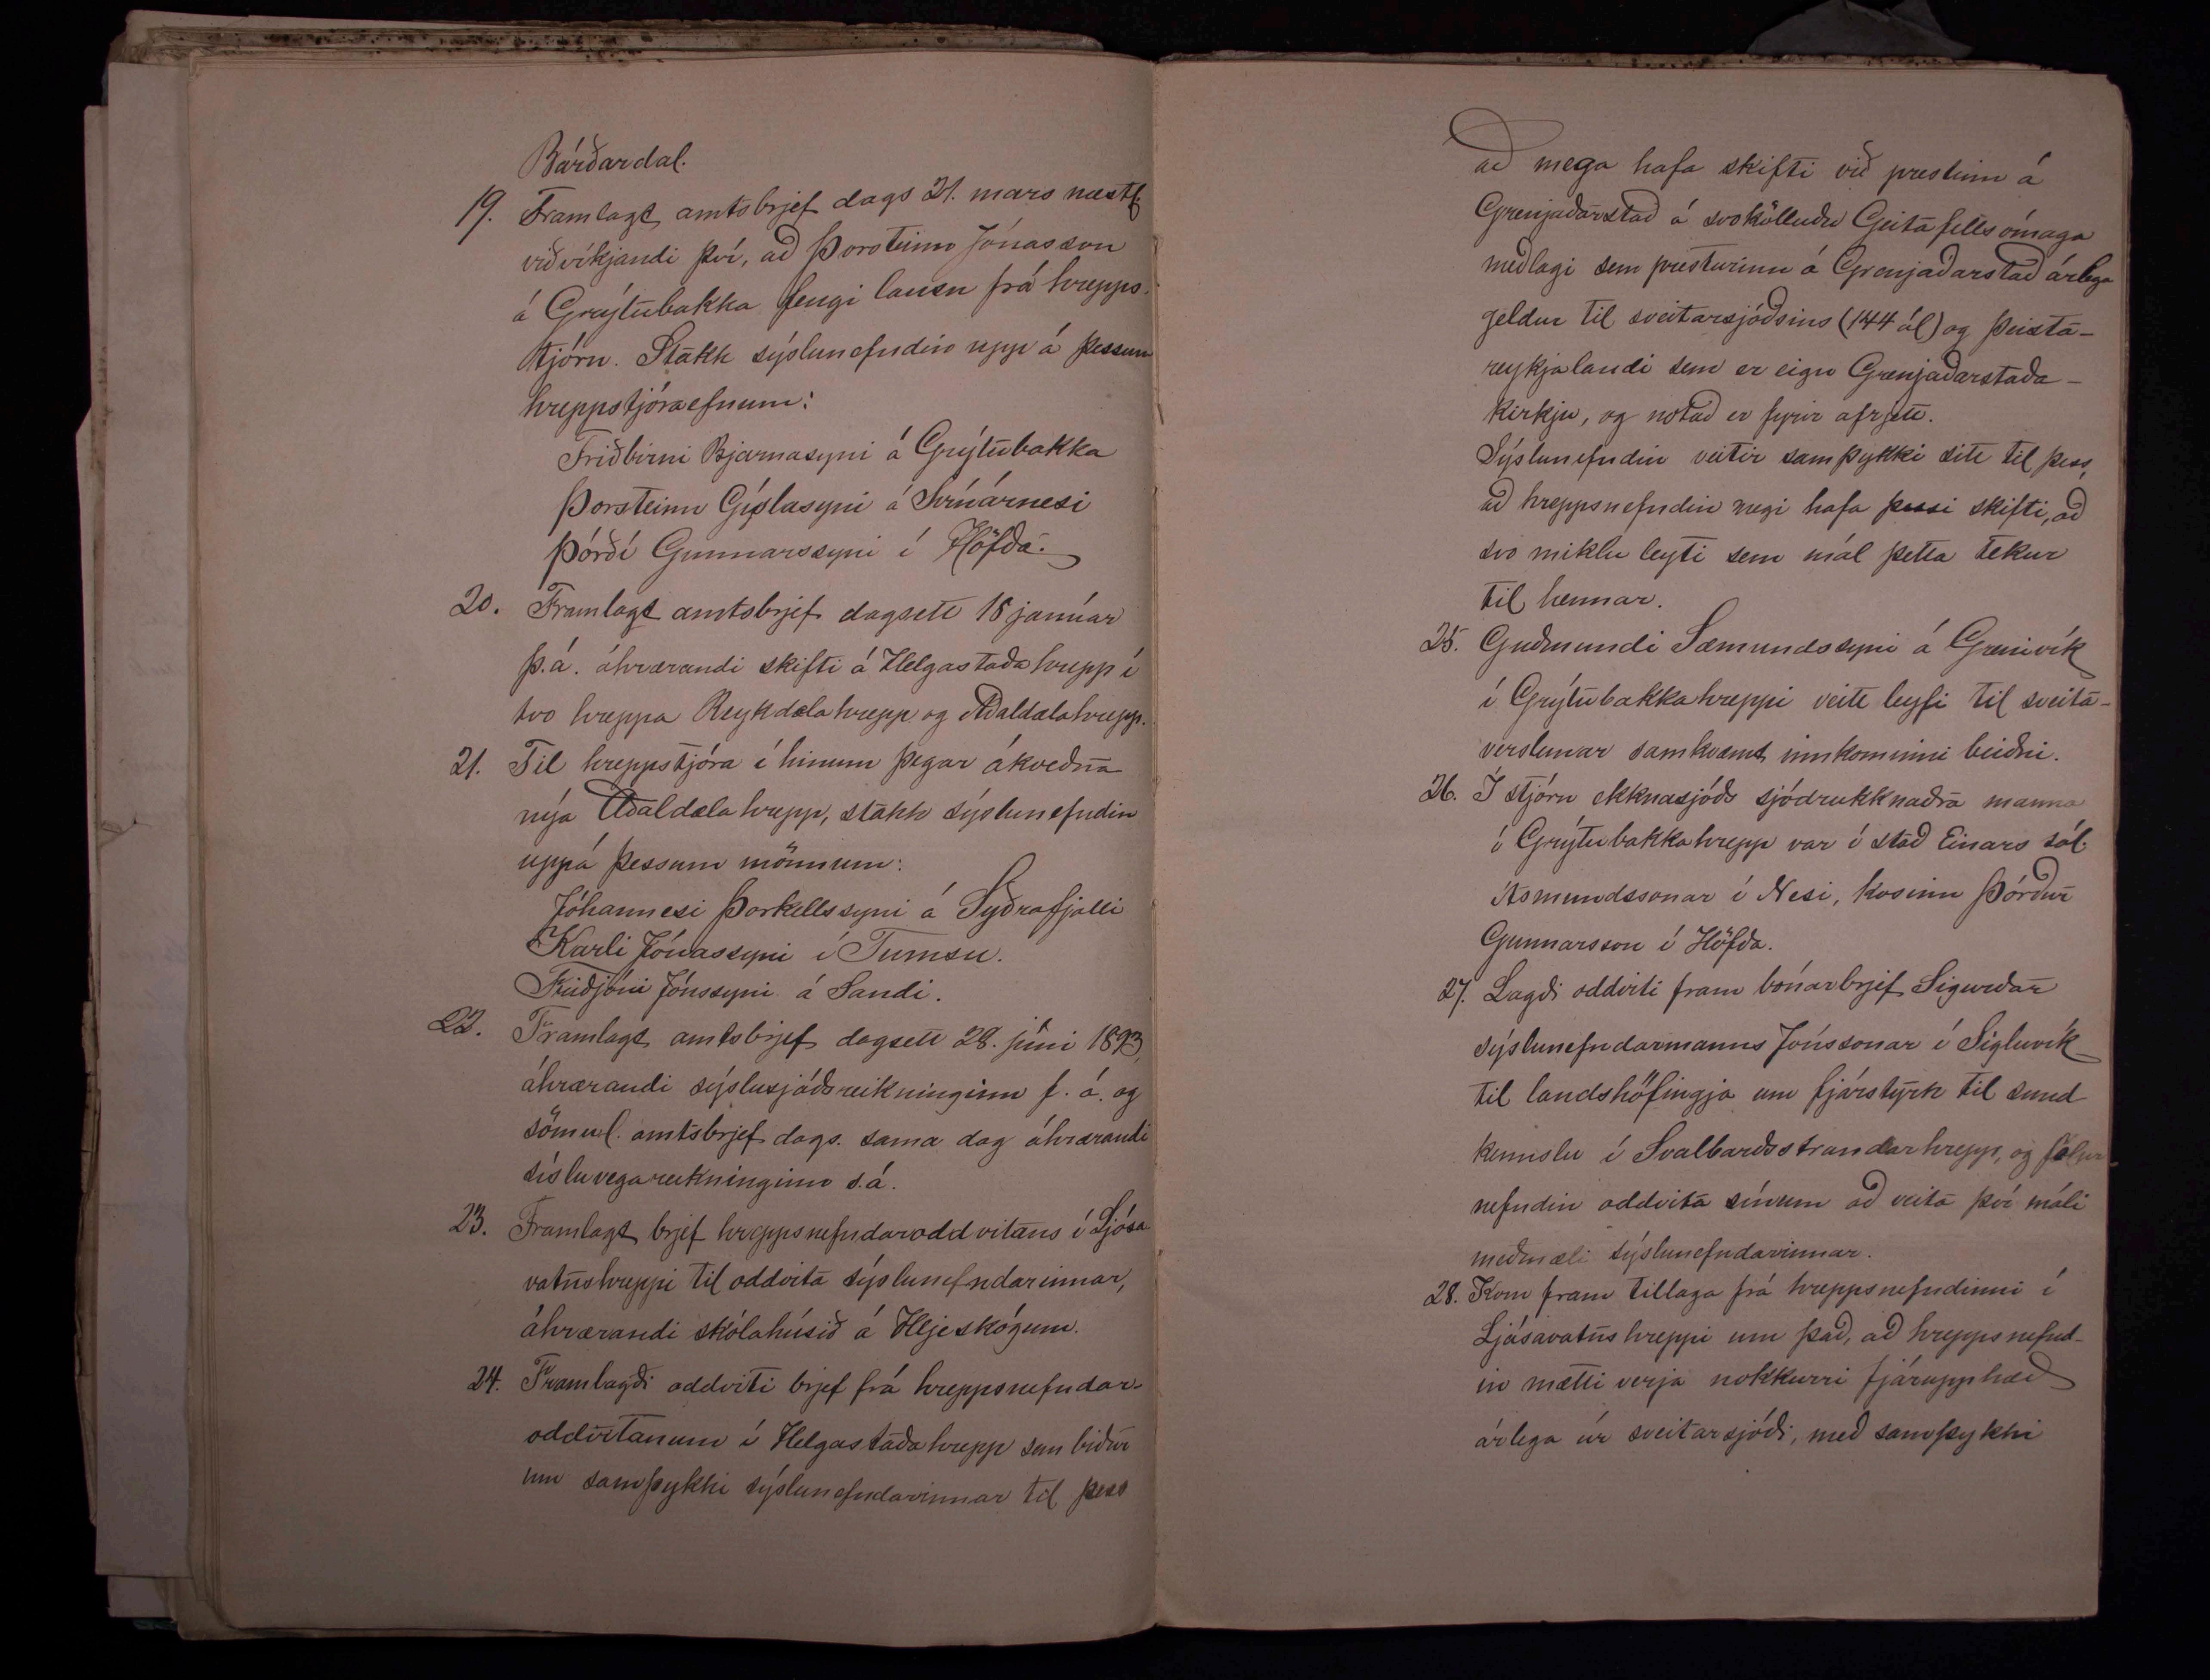 Bárðardal.
19. Framlagt amtsbrjef dags 21. mars næstl.
viðvíkjandi því, að Þorsteinn Jónasson
á Grýtubakka fengi lausn frá hrepps-
stjórn. Stakk sýslunefndin upp á þessum
hreppstjóraefnum:
Friðbirni Bjarnasyni á Grýtubakka
Þorsteinn Gíslasyni á Svínárnesi
Þórði Gunnarssyni í Höfða.
20. Framlagt amtsbrjef dagsett 15 janúar
þ.á. áhrærandi skifti á Helgastaðahrepp í
tvo hreppa Reykdælahrepp og Aðaldælahrepp.
21. Til hreppstjóra í hinum þegar ákveðna
nýja Aðaldælahrepp, stakk sýslunefndin
uppá þessum mönnum:
Jóhannesi Þorkellssyni á Syðrafjalli
Karli Jónassyni í Tumsu.
Friðjóni Jónssyni á Sandi.
22. Framlagt amtsbrjef dagsett 28. júni 1893,
áhrærandi sýslusjóðsreikninginn f. á. og
sömul. amtsbrjef dags. sama dag áhrærandi
sísluvegareikninginn s.á.
23. Framlagt brjef hreppsnefndaroddvitans í Ljósa
vatnshreppi til oddvita sýslunefndarinnar,
áhrærandi skólahúsið á Hljeskógum.
24. Framlagði oddviti brjef frá hreppsnefndar-
oddvitanum í Helgastaðahrepp sem biður
um samþykki sýslunefndarinnar til þess
að mega hafa skifti við prestinn á
Grenjaðarstað á svokölluðu Geitafellsómaga
meðlagi sem presturinn á Grenjaðarstað árlega
geldur til sveitarsjóðsins (144 ál) og Þeista-
reykjalandi sem er eign Grenjaðarstaða-
kirkju, og notað er fyrir afrjett.
Sýslunefndin veitir samþykki sitt til þess,
að hreppsnefndin megi hafa þessi skifti, að
svo miklu leyti sem mál þetta tekur
til hennar.
25. Guðmundi Sæmundssyni á Grenivík
í Grýtubakkahreppi veitt leyfi til sveita-
verslunar samkvæmt innkominni beiðni.
26. Í stjórn ekknasjóðs sjódrukknaðra manna
í Grýtubakkahrepp var í stað Einars sál.
Asmundssonar í Nesi, kosinn Þórður
Gunnarsson í Höfða.
27. Lagði oddviti fram bónarbrjef Sigurðar
sýslunefndarmanns Jónssonar í Sigluvík
til landshöfingja um fjárstyrk til sund
kennslu í Svalbarðsstrandarhrepp, og felur
nefndin oddvita sínum að veita því máli
meðmæli sýslunefndarinnar.
28. Kom fram tillaga frá hreppsnefndinni í
Ljósavatnshreppi um það, að hreppsnefnd-
in mætti verja nokkurri fjárupphæð
árlega úr sveitarsjóði, með samþykki